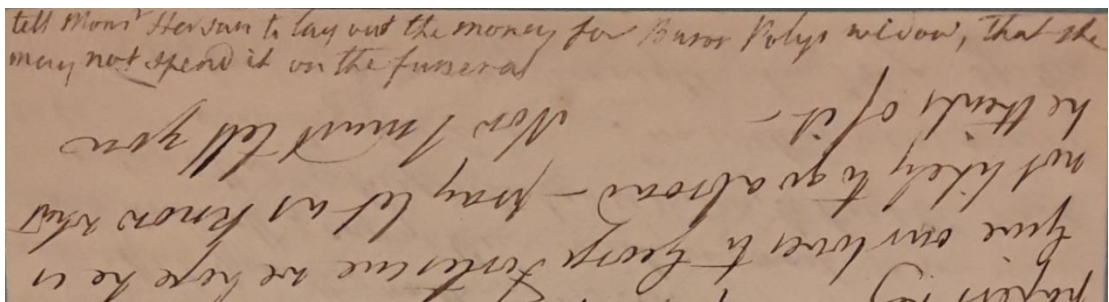 tell Monsr Hersan to lay out the money for Baron Polys widow, that she
may not spend it on the funeral
papers
Give our loves to George Fortescue we hope he is
not likely to go abroad – pray let us know what
he thinks of it – Now I must tell you